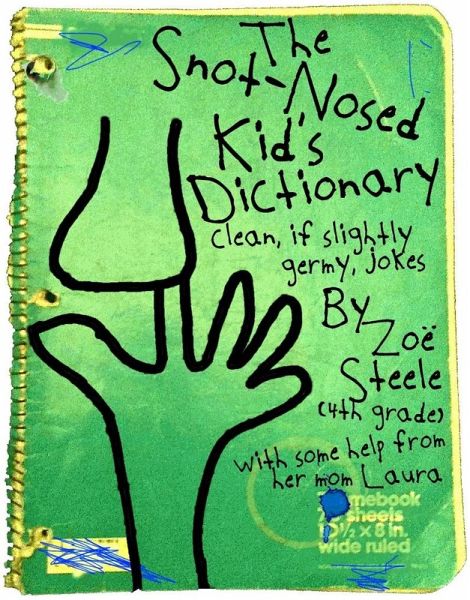 The
Snot-Nosed
Kid's
Dictionary
Clean, if slightly
germy, jokes
By
Zoë
Steele
(4th grade)
with some help from
her mom Laura
mebook
sheets
½ x 8 in.
wide ruled